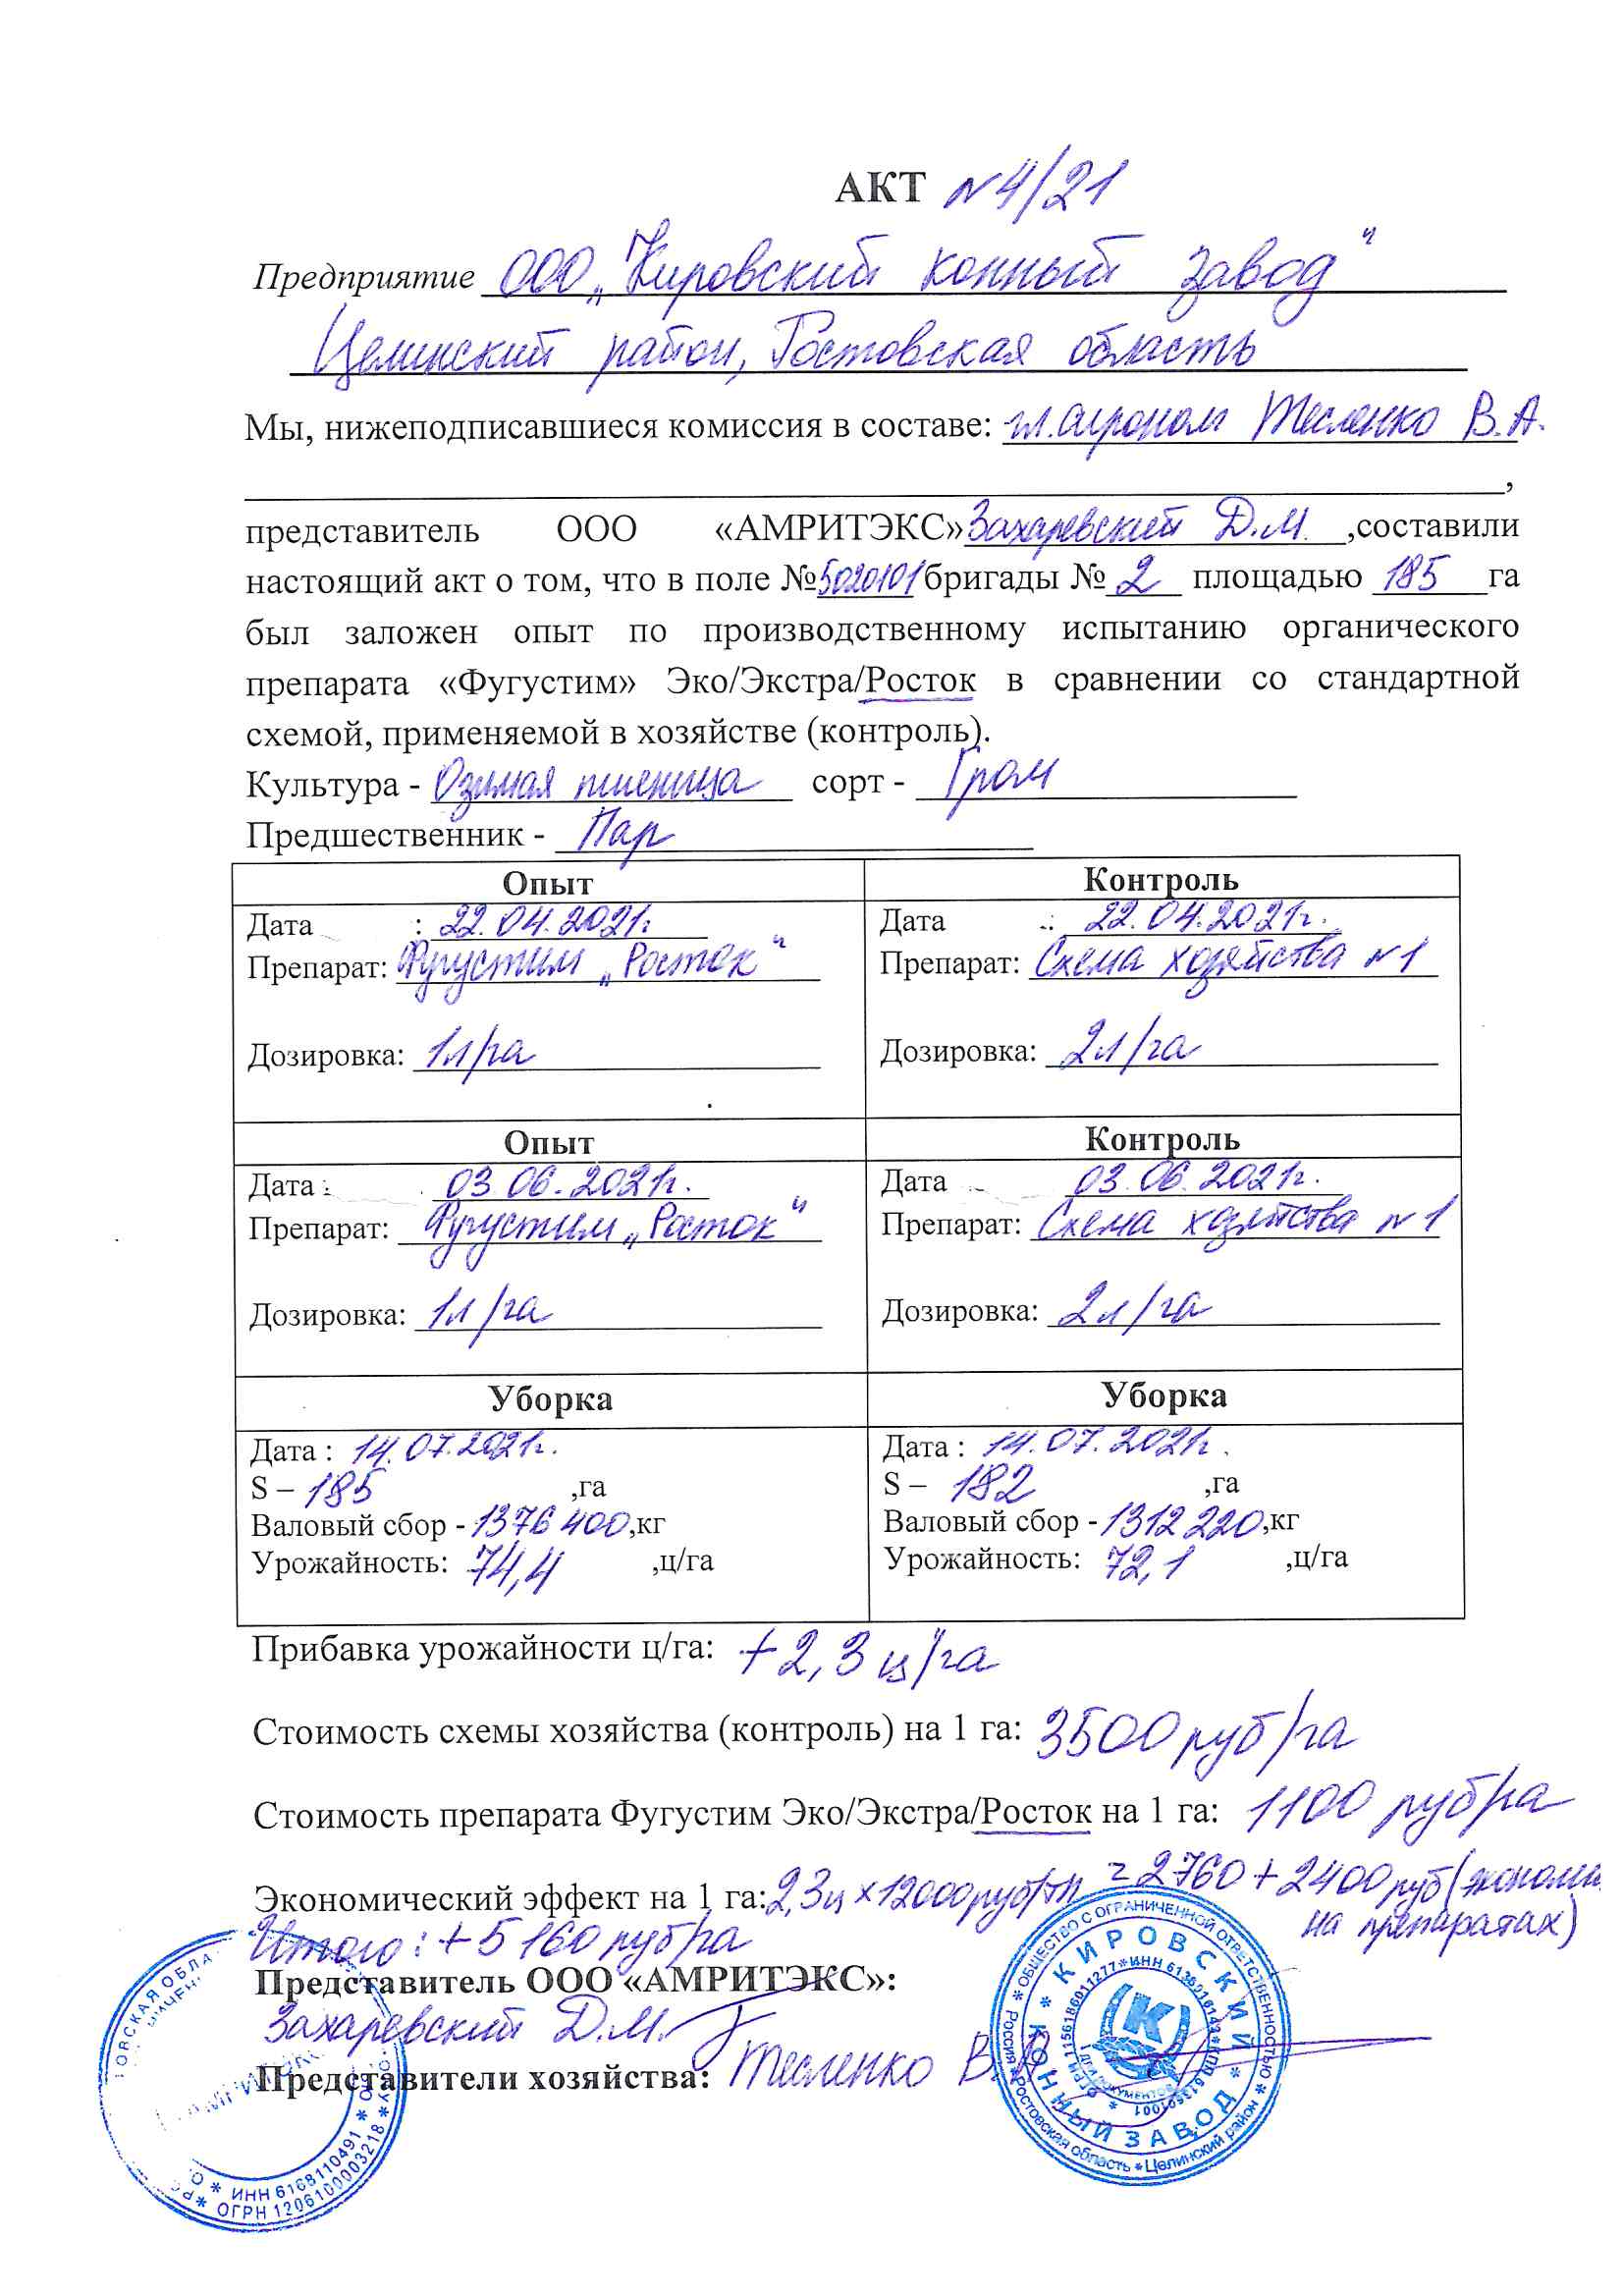 АКТ №4/21
Предприятие ООО „Кировский конный завод"
Целинский район, Ростовская область
Мы, нижеподписавшиеся комиссия в составе: гл. агроном Тесленко В.А.
,
представитель ООО «АМРИТЭКС» Захаревский Д.М. ,составили
настоящий акт о том, что в поле №5020101 бригады № 2 площадью 185 га
был заложен опыт по производственному испытанию органического
препарата «Фугустим» Эко/Экстра/Росток в сравнении со стандартной
схемой, применяемой в хозяйстве (контроль).
Культура - Озимая пшеница сорт - Гром
Предшественник - Пар
Опыт Контроль
Дата : 22.04.2021г. Дата : 22.04.2021г.
Препарат: Фугустим „Росток" Препарат: Схема хозяйства №1
Дозировка: 1л/га Дозировка: 2л/га
Опыт Контроль
Дата : 03.06.2021г. Дата 03.06.2021г.
Препарат: Фугустим „Росток" Препарат: Схема хозяйства №1
Дозировка: 1л/га Дозировка: 2л/га
Уборка Уборка
Дата : 14.07.2021г. Дата : 14.07.2021г.
S – 185 ,га S – 182 ,га
Валовый сбор - 1376 400,кг Валовый сбор - 1312 220,кг
Урожайность: 74,4 ,ц/га Урожайность: 72,1 ,ц/га
Прибавка урожайности ц/га: +2,3 ц/га
Стоимость схемы хозяйства (контроль) на 1 га: 3500 руб/га
Стоимость препарата Фугустим Эко/Экстра/Росток на 1 га: 1100 руб/га
Экономический эффект на 1 га: 2,3ц × 12000 руб/тн = 2760 + 2400 руб (экономи
на препаратах)
Итого: +5160 руб/га
Представитель ООО «АМРИТЭКС»:
Захаревский Д.М.
Представители хозяйства: Тесленко В.А.
ИНН 6168110491
ОГРН 1206100003218
ОБЩЕСТВО С ОГРАНИЧЕННОЙ ОТВЕТСТВЕННОСТЬЮ
Россия * Ростовская область * Целинский район
КИРОВСКИЙ КОННЫЙ ЗАВОД